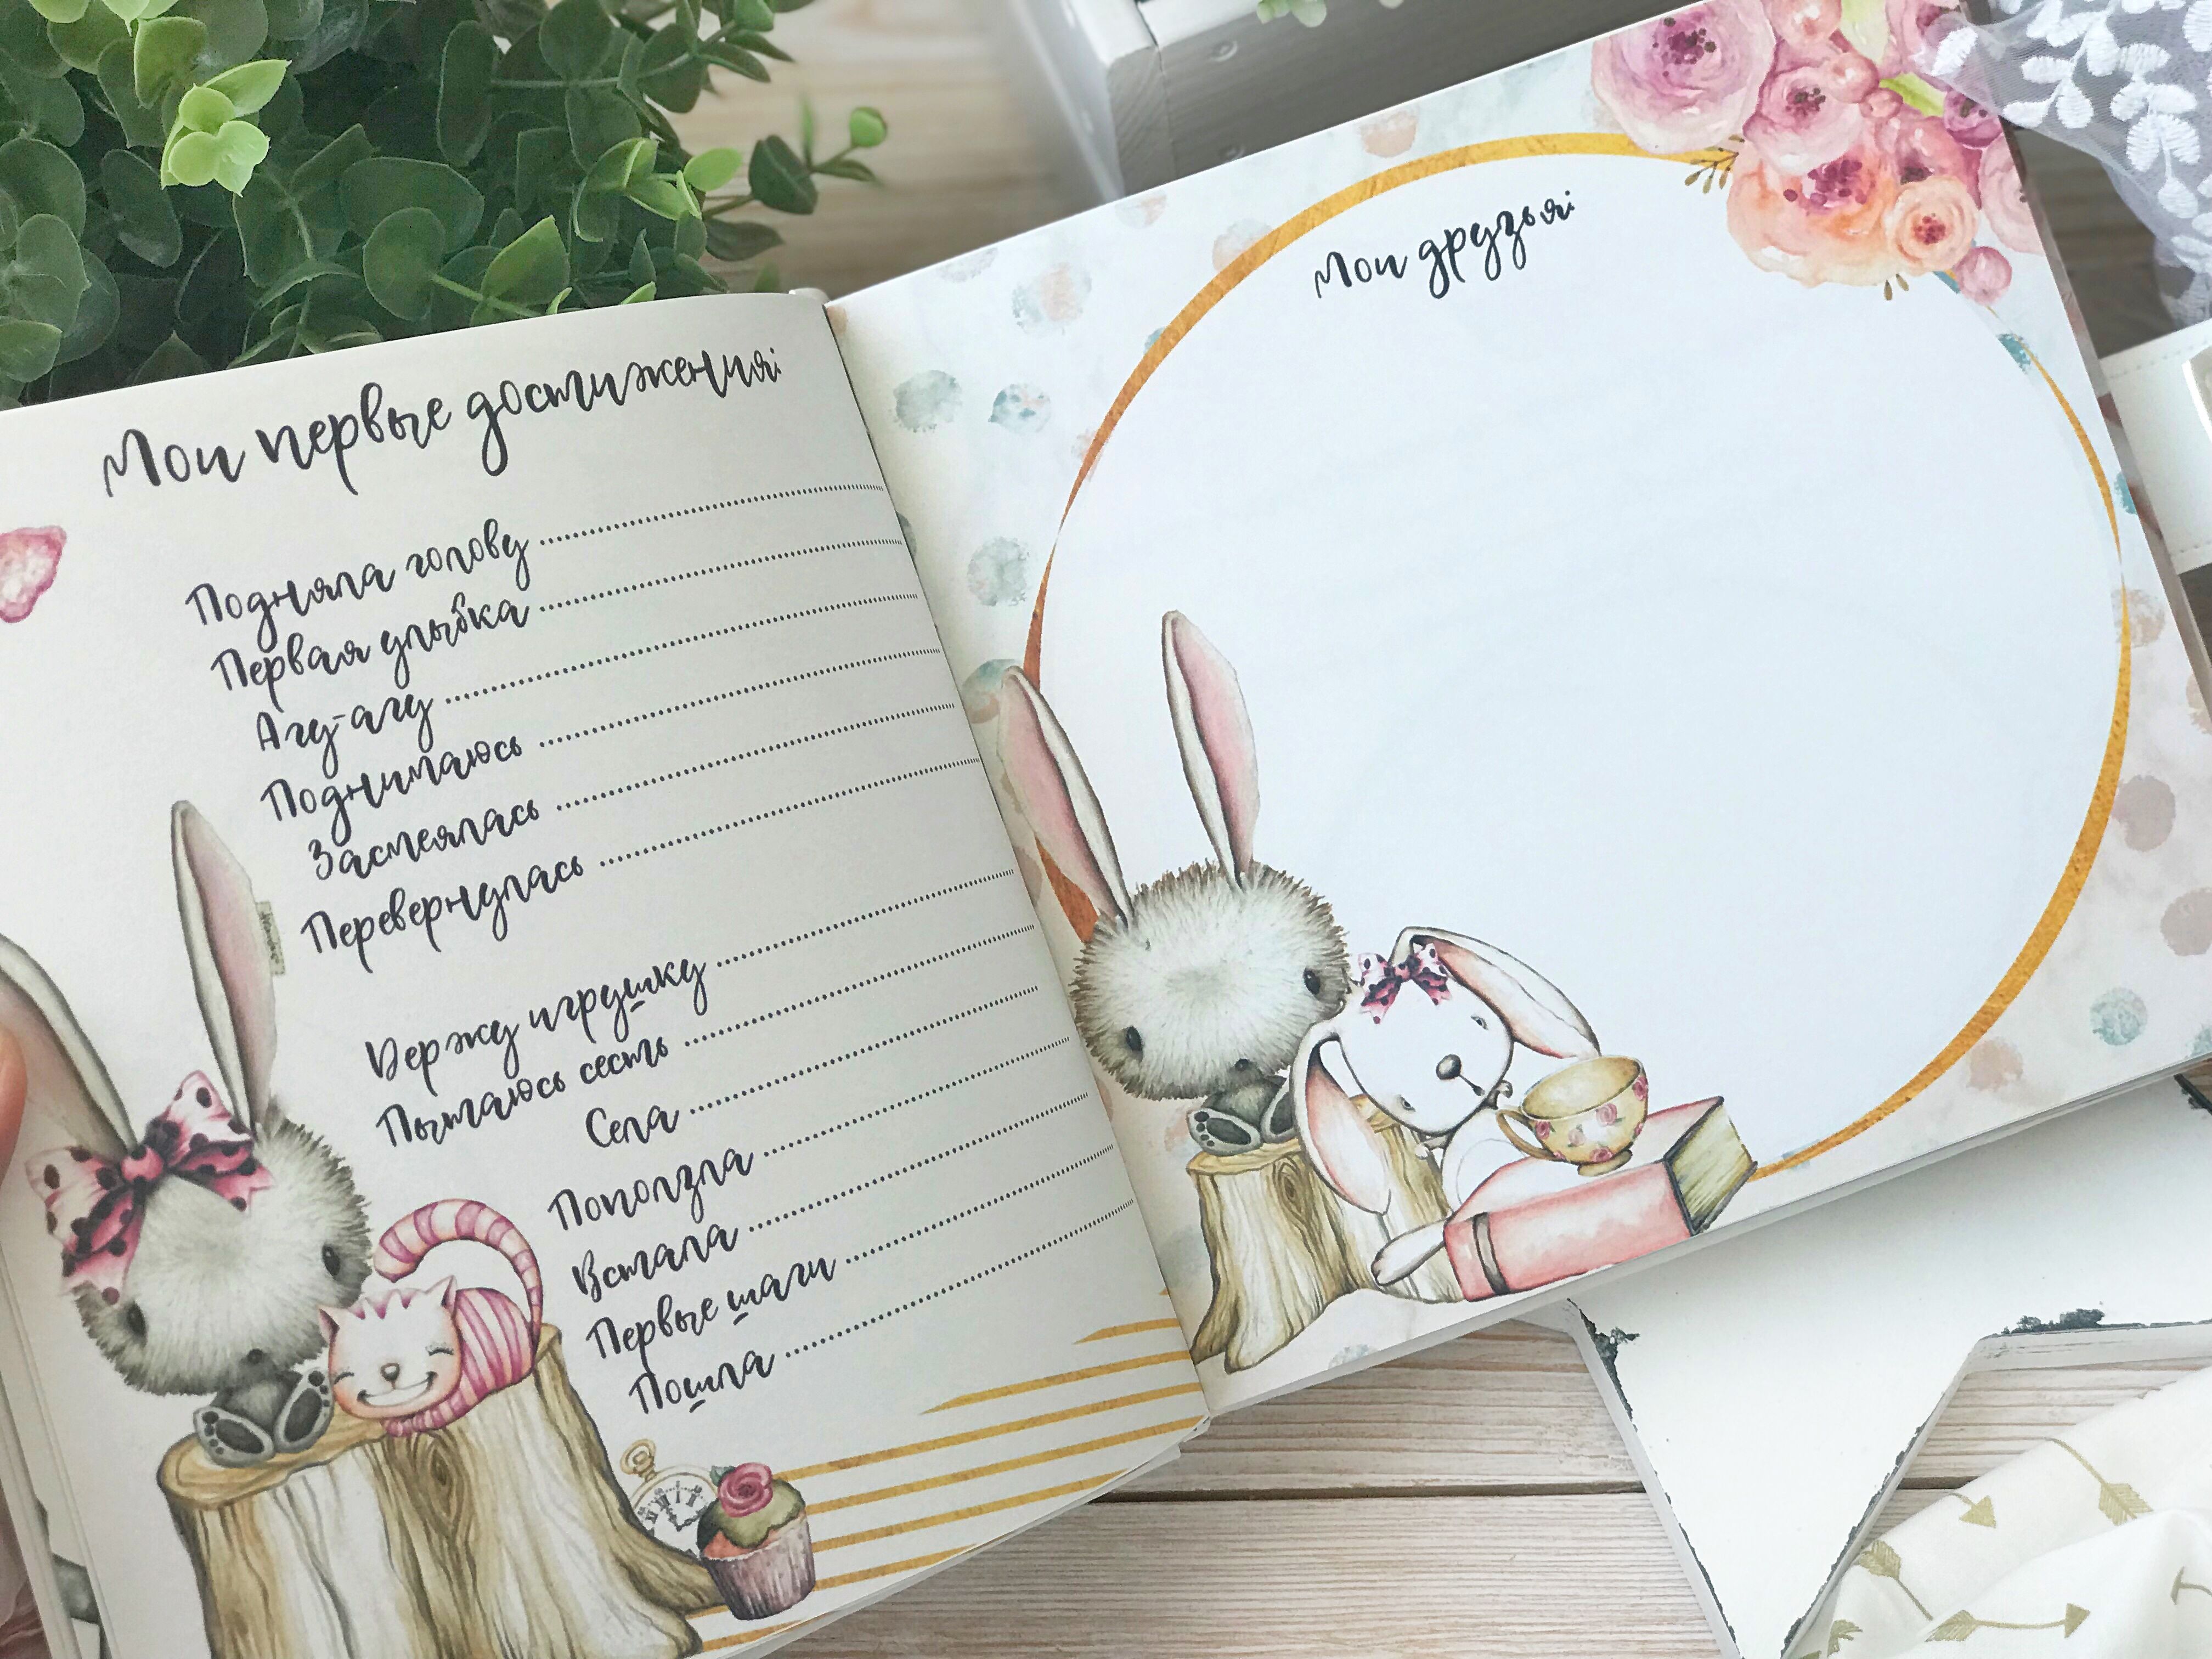 Мои первые достижения:
Подняла голову
Первая улыбка
Агу-агу
Поднимаюсь
Засмеялась
Перевернулась
Держу игрушку
Пытаюсь сесть
Села
Поползла
Встала
Первые шаги
Пошла
Мои друзья: